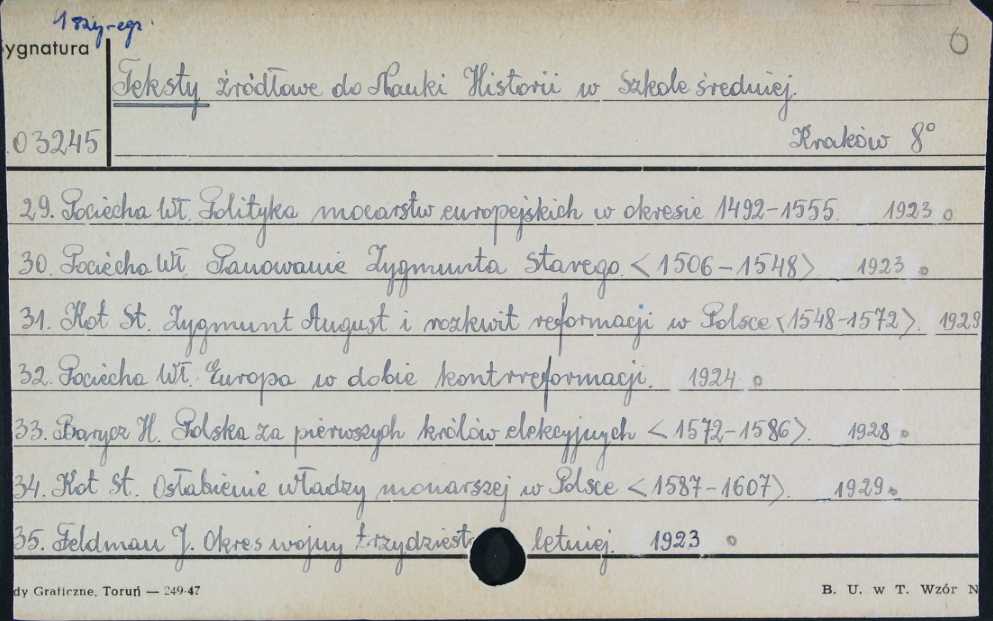 1 egz.
ygnatura
6
Teksty źródłowe do Nauki Historii w Szkole średniej.
03245
Kraków 8°
29. Pociecha Wł. Polityka mocarstw europejskich w okresie 1492-1555. 1923
30. Pociecha Wł. Panowanie Zygmunta Starego <1506-1548> 1923
31. Kot St. Zygmunt August i rozkwit reformacji w Polsce <1548-1572>. 1923
32. Pociecha Wł. Europa w dobie kontrreformacji. 1924
33. Barycz H. Polska za pierwszych królów elekcyjnych <1572-1586>. 1928
34. Kot St. Osłabienie władzy monarszej w Polsce <1587-1607>. 1929
35. Feldman J. Okres wojny trzydziesto letniej. 1923
dy Graficzne, Toruń — 249-47
B. U. w T. Wzór N